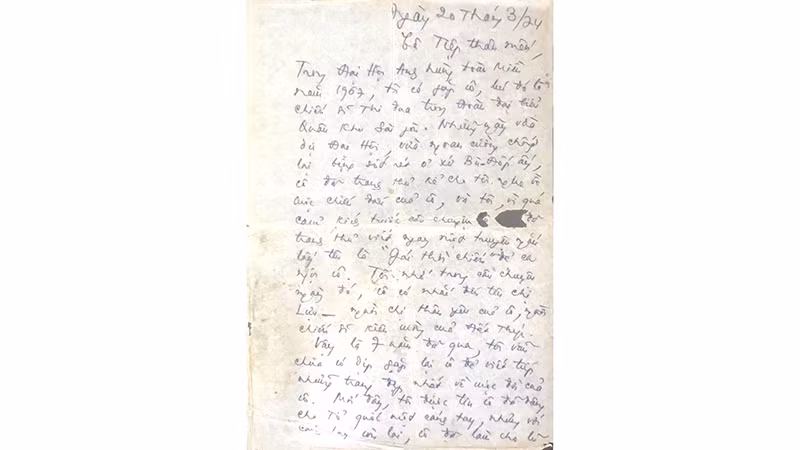 Ngày 20 Tháng 3/74
Cô Tiếp thân mến,
Trong Đại Hội Anh hùng toàn Miền
năm 1967, tôi có gặp cô, lúc đó là
chiến sĩ Thi đua trong Đoàn đại biểu
Quân khu Sài gòn. Những ngày vừa
dự Đại Hội, vừa ngoan cường chống
lại bệnh sốt rét ở xứ Bù-Đốp ấy,
cô đã tranh thủ kể cho tôi nghe về
cuộc chiến đấu của cô, và tôi, vì quá
cảm kích trước câu chuyện đã
tranh thủ viết ngay một truyện ngắn
lấy tên là "Gái thời chiến" để ca
ngợi cô. Tôi nhớ trong câu chuyện
ngày đó, cô có nhắc đến tên chị
Lựu — người chị thân yêu của cô, người
chiến sĩ kiên cường của
Vậy là 7 năm đã qua, tôi vẫn
chưa có dịp gặp lại cô để viết tiếp
những trang đẹp nhất về cuộc đời của
cô. Mới đây, tôi được tin cô đã dâng
cho Tổ quốc một cánh tay, nhưng với
cánh tay còn lại, cô đã làm cho